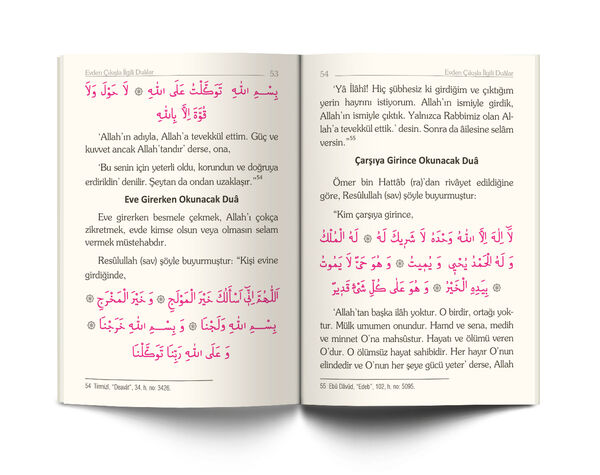 Evden Çıkışla İlgili Duâlar 53
بِسْمِ اللهِ تَوَكَّلْتُ عَلَى اللهِ ۞ لَا حَوْلَ وَلَا
قُوَّةَ اِلَّا بِاللهِ
'Allah'ın adıyla, Allah'a tevekkül ettim. Güç ve
kuvvet ancak Allah'tandır' derse, ona,
'Bu senin için yeterli oldu, korundun ve doğruya
erdirildin' denilir. Şeytan da ondan uzaklaşır."54
Eve Girerken Okunacak Duâ
Eve girerken besmele çekmek, Allah'ı çokça
zikretmek, evde kimse olsun veya olmasın selam
vermek müstehabdır.
Resûlullah (sav) şöyle buyurmuştur: "Kişi evine
girdiğinde,
اَللّٰهُمَّ اِنِّي اَسْأَلُكَ خَيْرَ الْمَوْلَجِ ۞ وَ خَيْرَ الْمَخْرَجِ ۞
بِسْمِ اللهِ وَلَجْنَا ۞ وَ بِسْمِ اللهِ خَرَجْنَا ۞
وَ عَلَى اللهِ رَبِّنَا تَوَكَّلْنَا
54 Tirmizî, "Deavât", 34, h. no: 3426.
54 Evden Çıkışla İlgili Duâlar
'Yâ İlâhî! Hiç şübhesiz ki girdiğim ve çıktığım
yerin hayrını istiyorum. Allah'ın ismiyle girdik,
Allah'ın ismiyle çıktık. Yalnızca Rabbimiz olan Al-
lah'a tevekkül ettik.' desin. Sonra da âilesine selâm
versin."55
Çarşıya Girince Okunacak Duâ
Ömer bin Hattâb (ra)'dan rivâyet edildiğine
göre, Resûlullah (sav) şöyle buyurmuştur:
"Kim çarşıya girince,
لَا اِلٰهَ اِلَّا اللهُ وَحْدَهُ لَا شَرِيكَ لَهُ ۞ لَهُ الْمُلْكُ
وَ لَهُ الْحَمْدُ يُحْيِي وَ يُمِيتُ ۞ وَ هُوَ حَيٌّ لَا يَمُوتُ
۞ بِيَدِهِ الْخَيْرُ ۞ وَ هُوَ عَلٰى كُلِّ شَيْءٍ قَدِيرٌ
'Allah'tan başka ilâh yoktur. O birdir, ortağı yok-
tur. Mülk umumen onundur. Hamd ve sena, medih
ve minnet O'na mahsûstur. Hayatı ve ölümü veren
O'dur. O ölümsüz hayat sahibidir. Her hayır O'nun
elindedir ve O'nun her şeye gücü yeter' derse, Allah
55 Ebû Dâvûd, "Edeb", 102, h. no: 5095.